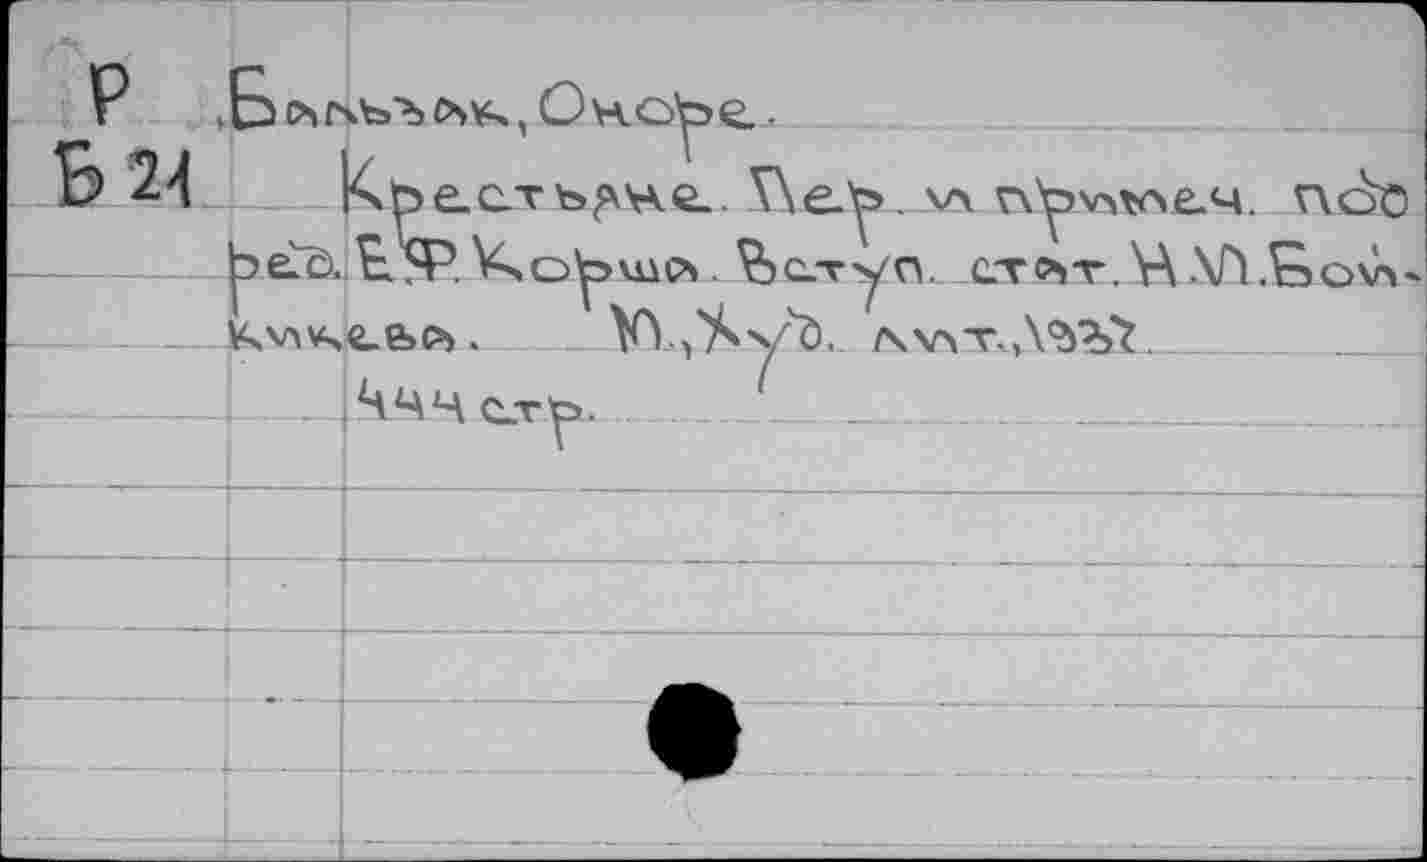 Р Бальзак, Оноре.
Б 21 Крестьяне. Пер. и примеч. под
ред. Е.Ф. Корша. Вступ. стат. Н.И. Бой-
кикева. М., Худ. лит., 1937.
444 стр.